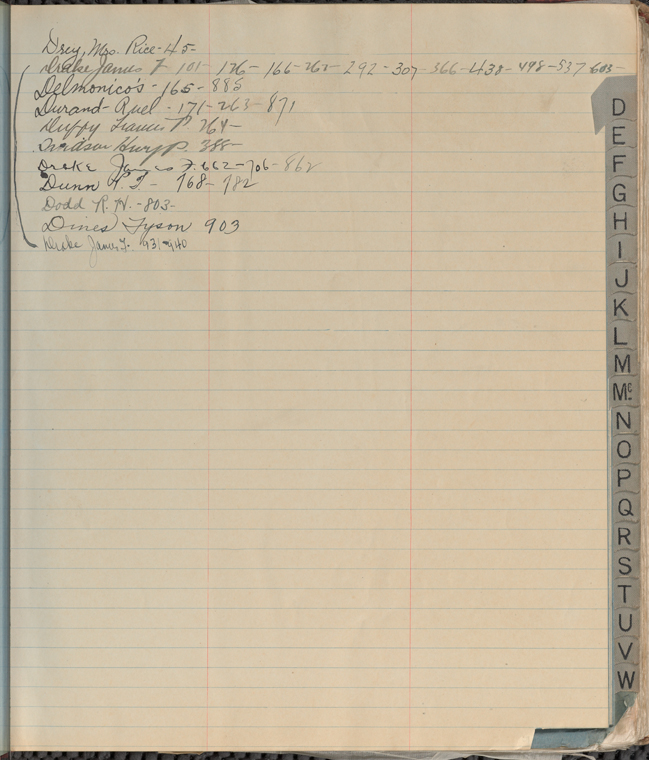 Drey, Mrs. Rice - 45 -
Drake James F 101 - 126 - 166 - 262 - 292 - 307 - 366 - 438 - 498 - 537 603 -
Delmonico's - 165 - 885
Durand-Ruel - 171 - 263 - 871
Duffy Francis P. 264 -
P. 388 -
Drake James F. 662 - 706 - 862
Dunn - 768 - 782
Dodd R. H. - 803 -
Dines Tyson 903
Drake James F. 931 - 940
D
E
F
G
H
I
J
K
L
M
Mc
N
O
P
Q
R
S
T
U
V
W